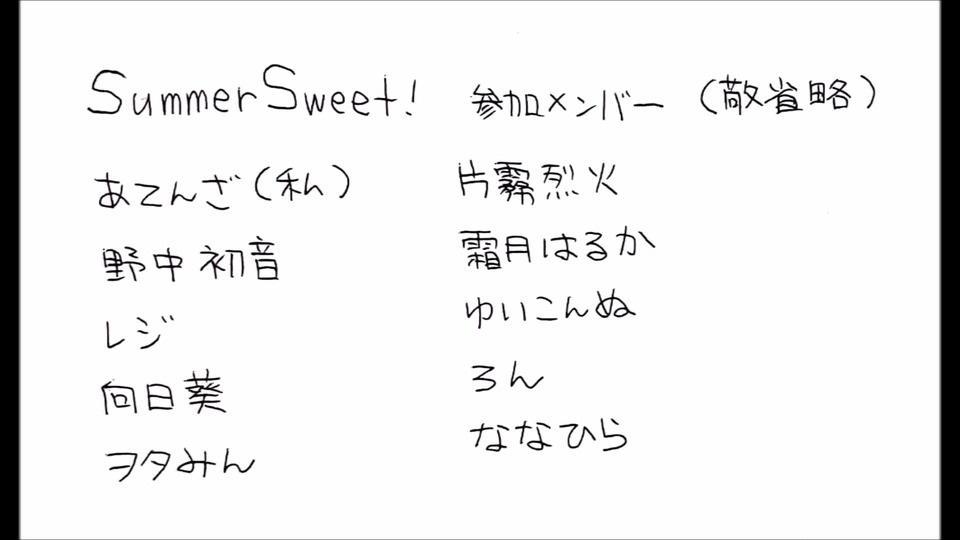 Summer Sweet! 参加メンバー (敬省略)
あてんざ(私)
野中初音
レジ
向日葵
ヲタみん
片霧烈火
霜月はるか
ゆいこんぬ
ろん
ななひら